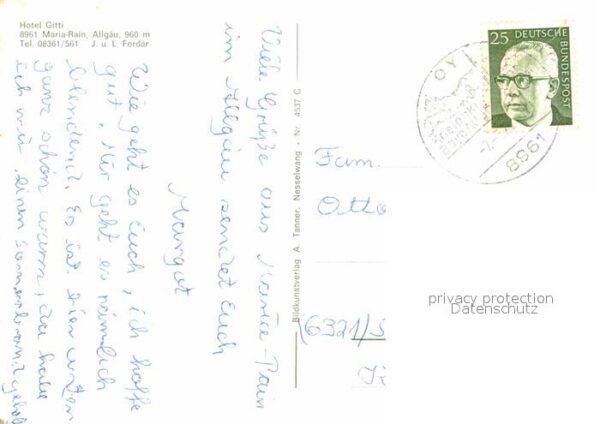 Hotel Gitti
8961 Maria-Rain, Allgäu, 960 m
Tel. 08361/561 J. u. L. Ferdär
Viele Grüße aus Maria-Rain
im Allgäu sendet Euch
Margot
Wie geht es Euch, ich hoffe
gut. Mir geht es nämlich
blendend. Es ist hier unten
ganz schön warm, da habe
ich mir einen Sonnenbrand geholt
Bildkunstverlag A. Tanner, Nesselwang - Nr. 4337 C
25 DEUTSCHE BUNDESPOST
OY
8961
Fam.
Otto
(6321)
privacy protection
Datenschutz